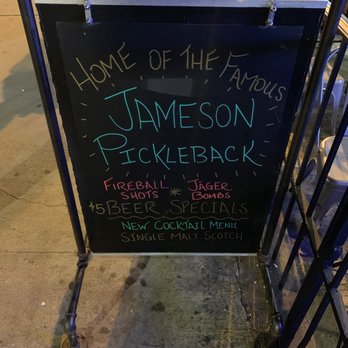 HOME OF THE FAMOUS
JAMESON
PICKLEBACK
FIREBALL SHOTS * JÄGER BOMBS
$5 BEER SPECIALS
NEW COCKTAIL MENU
SINGLE MALT SCOTCH